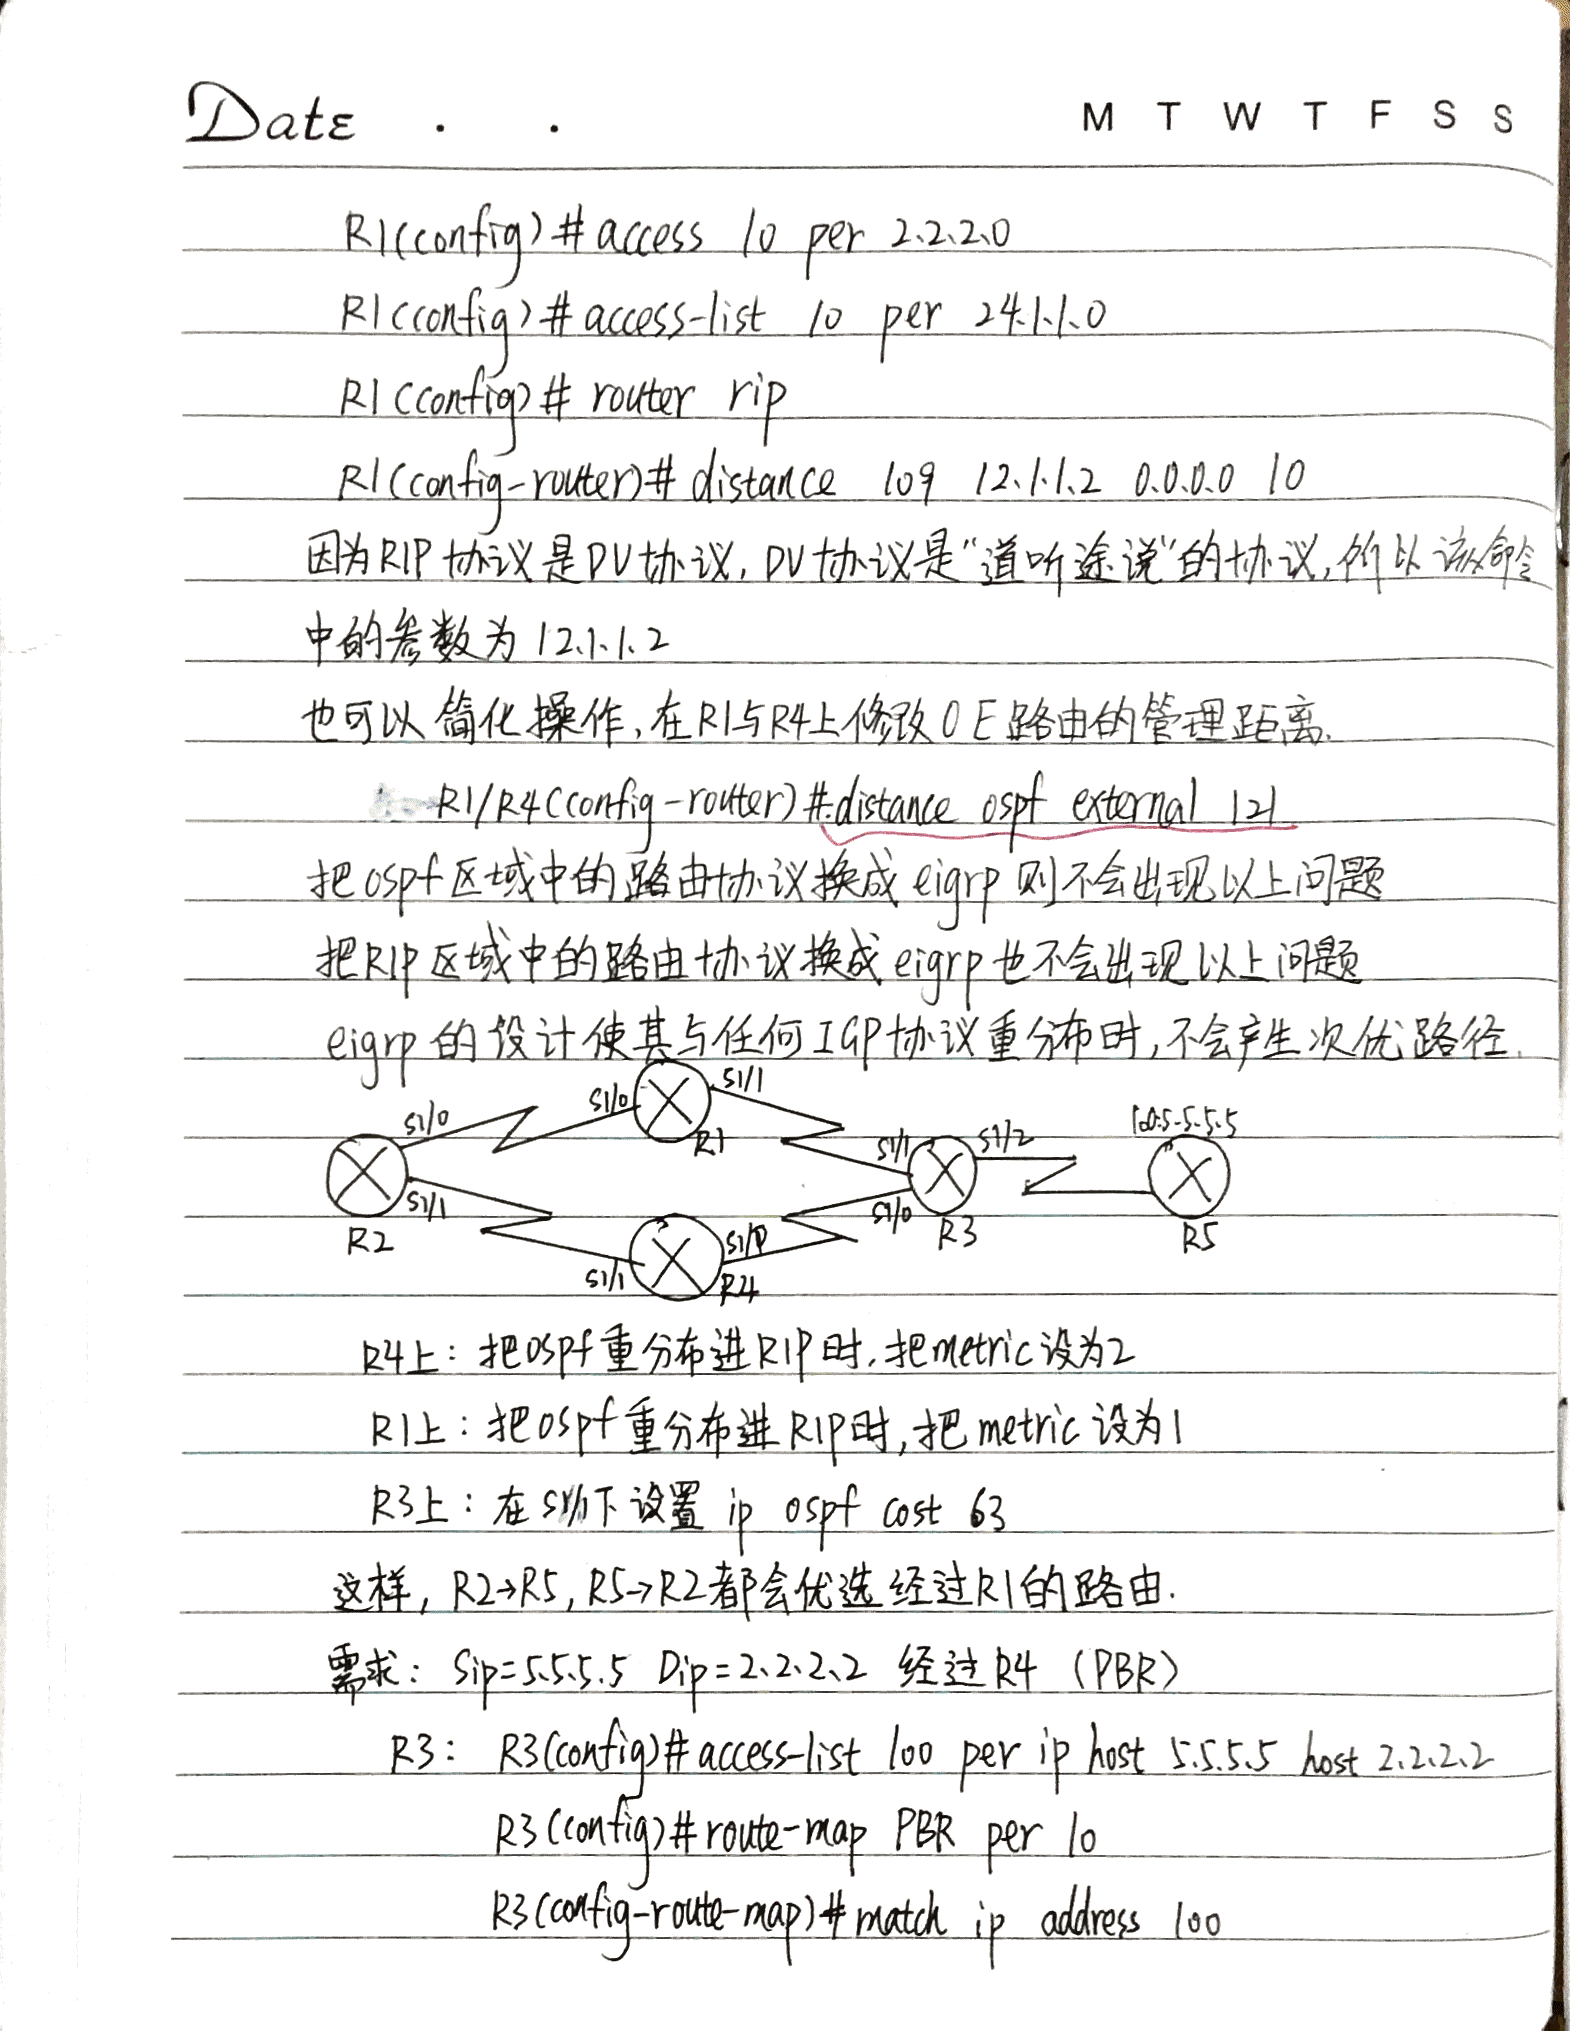 Date . .
M T W T F S S
R1(config)#access 10 per 2.2.2.0
R1(config)#access-list 10 per 24.1.1.0
R1(config)# router rip
R1(config-router)# distance 109 12.1.1.2 0.0.0.0 10
因为RIP协议是DV协议,DV协议是"道听途说"的协议,所以该命令
中的参数为12.1.1.2
也可以简化操作,在R1与R4上修改OE路由的管理距离.
R1/R4(config-router)#distance ospf external 121
把ospf区域中的路由协议换成eigrp则不会出现以上问题
把RIP区域中的路由协议换成eigrp也不会出现以上问题
eigrp的设计使其与任何IGP协议重分布时,不会产生次优路径.
S1/0 S1/0 R1 S1/1
S1/1 S1/2
R2 S1/1
S1/1 R4
S1/0 R3
5.5.5.5 R5
R4上:把ospf重分布进RIP时,把metric设为2
R1上:把ospf重分布进RIP时,把metric设为1
R3上:在下设置 ip ospf cost 63
这样,R2→R5,R5→R2都会优选经过R1的路由.
需求: Sip=5.5.5.5 Dip=2.2.2.2 经过R4 (PBR)
R3: R3(config)#access-list 100 per ip host 5.5.5.5 host 2.2.2.2
R3(config)#route-map PBR per 10
R3(config-route-map)#match ip address 100